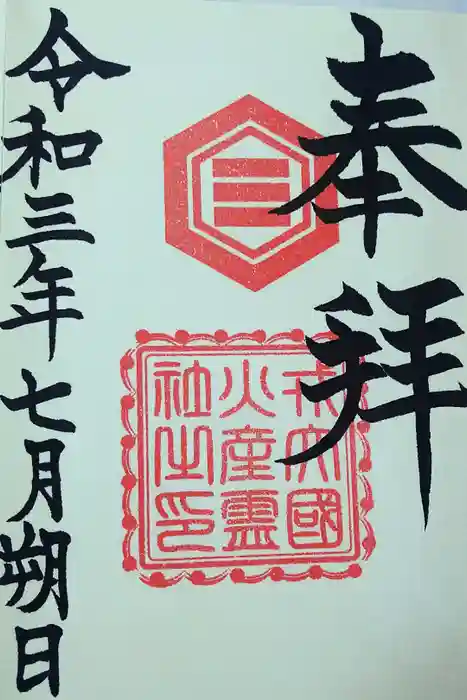 奉拝
戎大國
火産霊
社之印
三
令和三年七月朔日